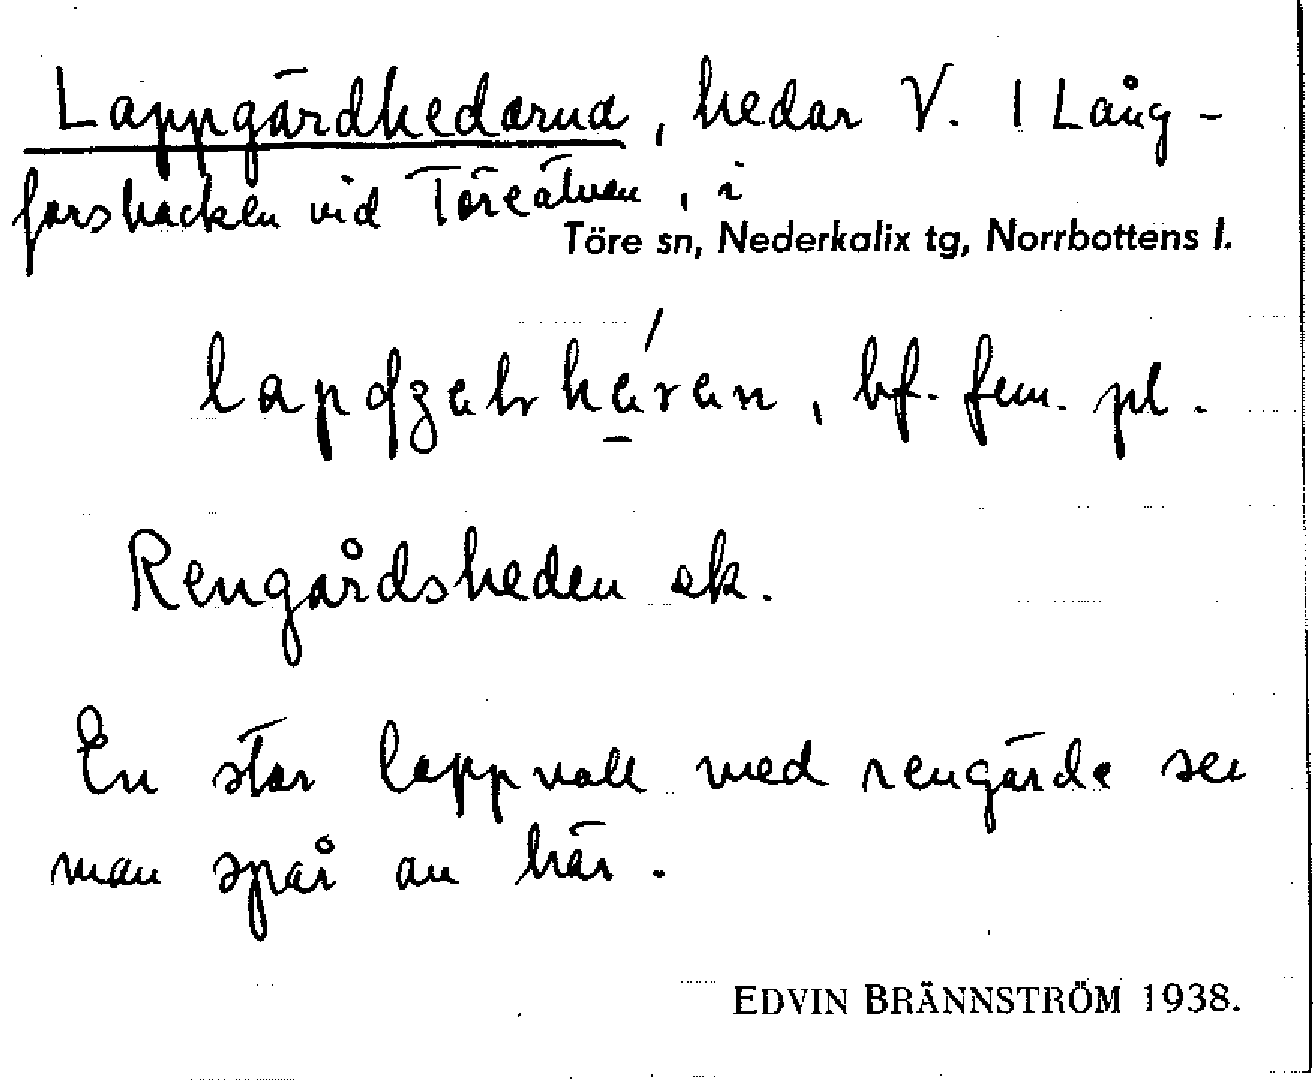 Lappgärdhedarna, hedar V. I Lång-
forsbacken vid Töreälven, i
Töre sn, Nederkalix tg, Norrbottens l.
bf. fem. pl.
Rengårdsheden ek.
En stor lappvall med rengärde ser
man spår av här.
EDVIN BRÄNNSTRÖM 1938.